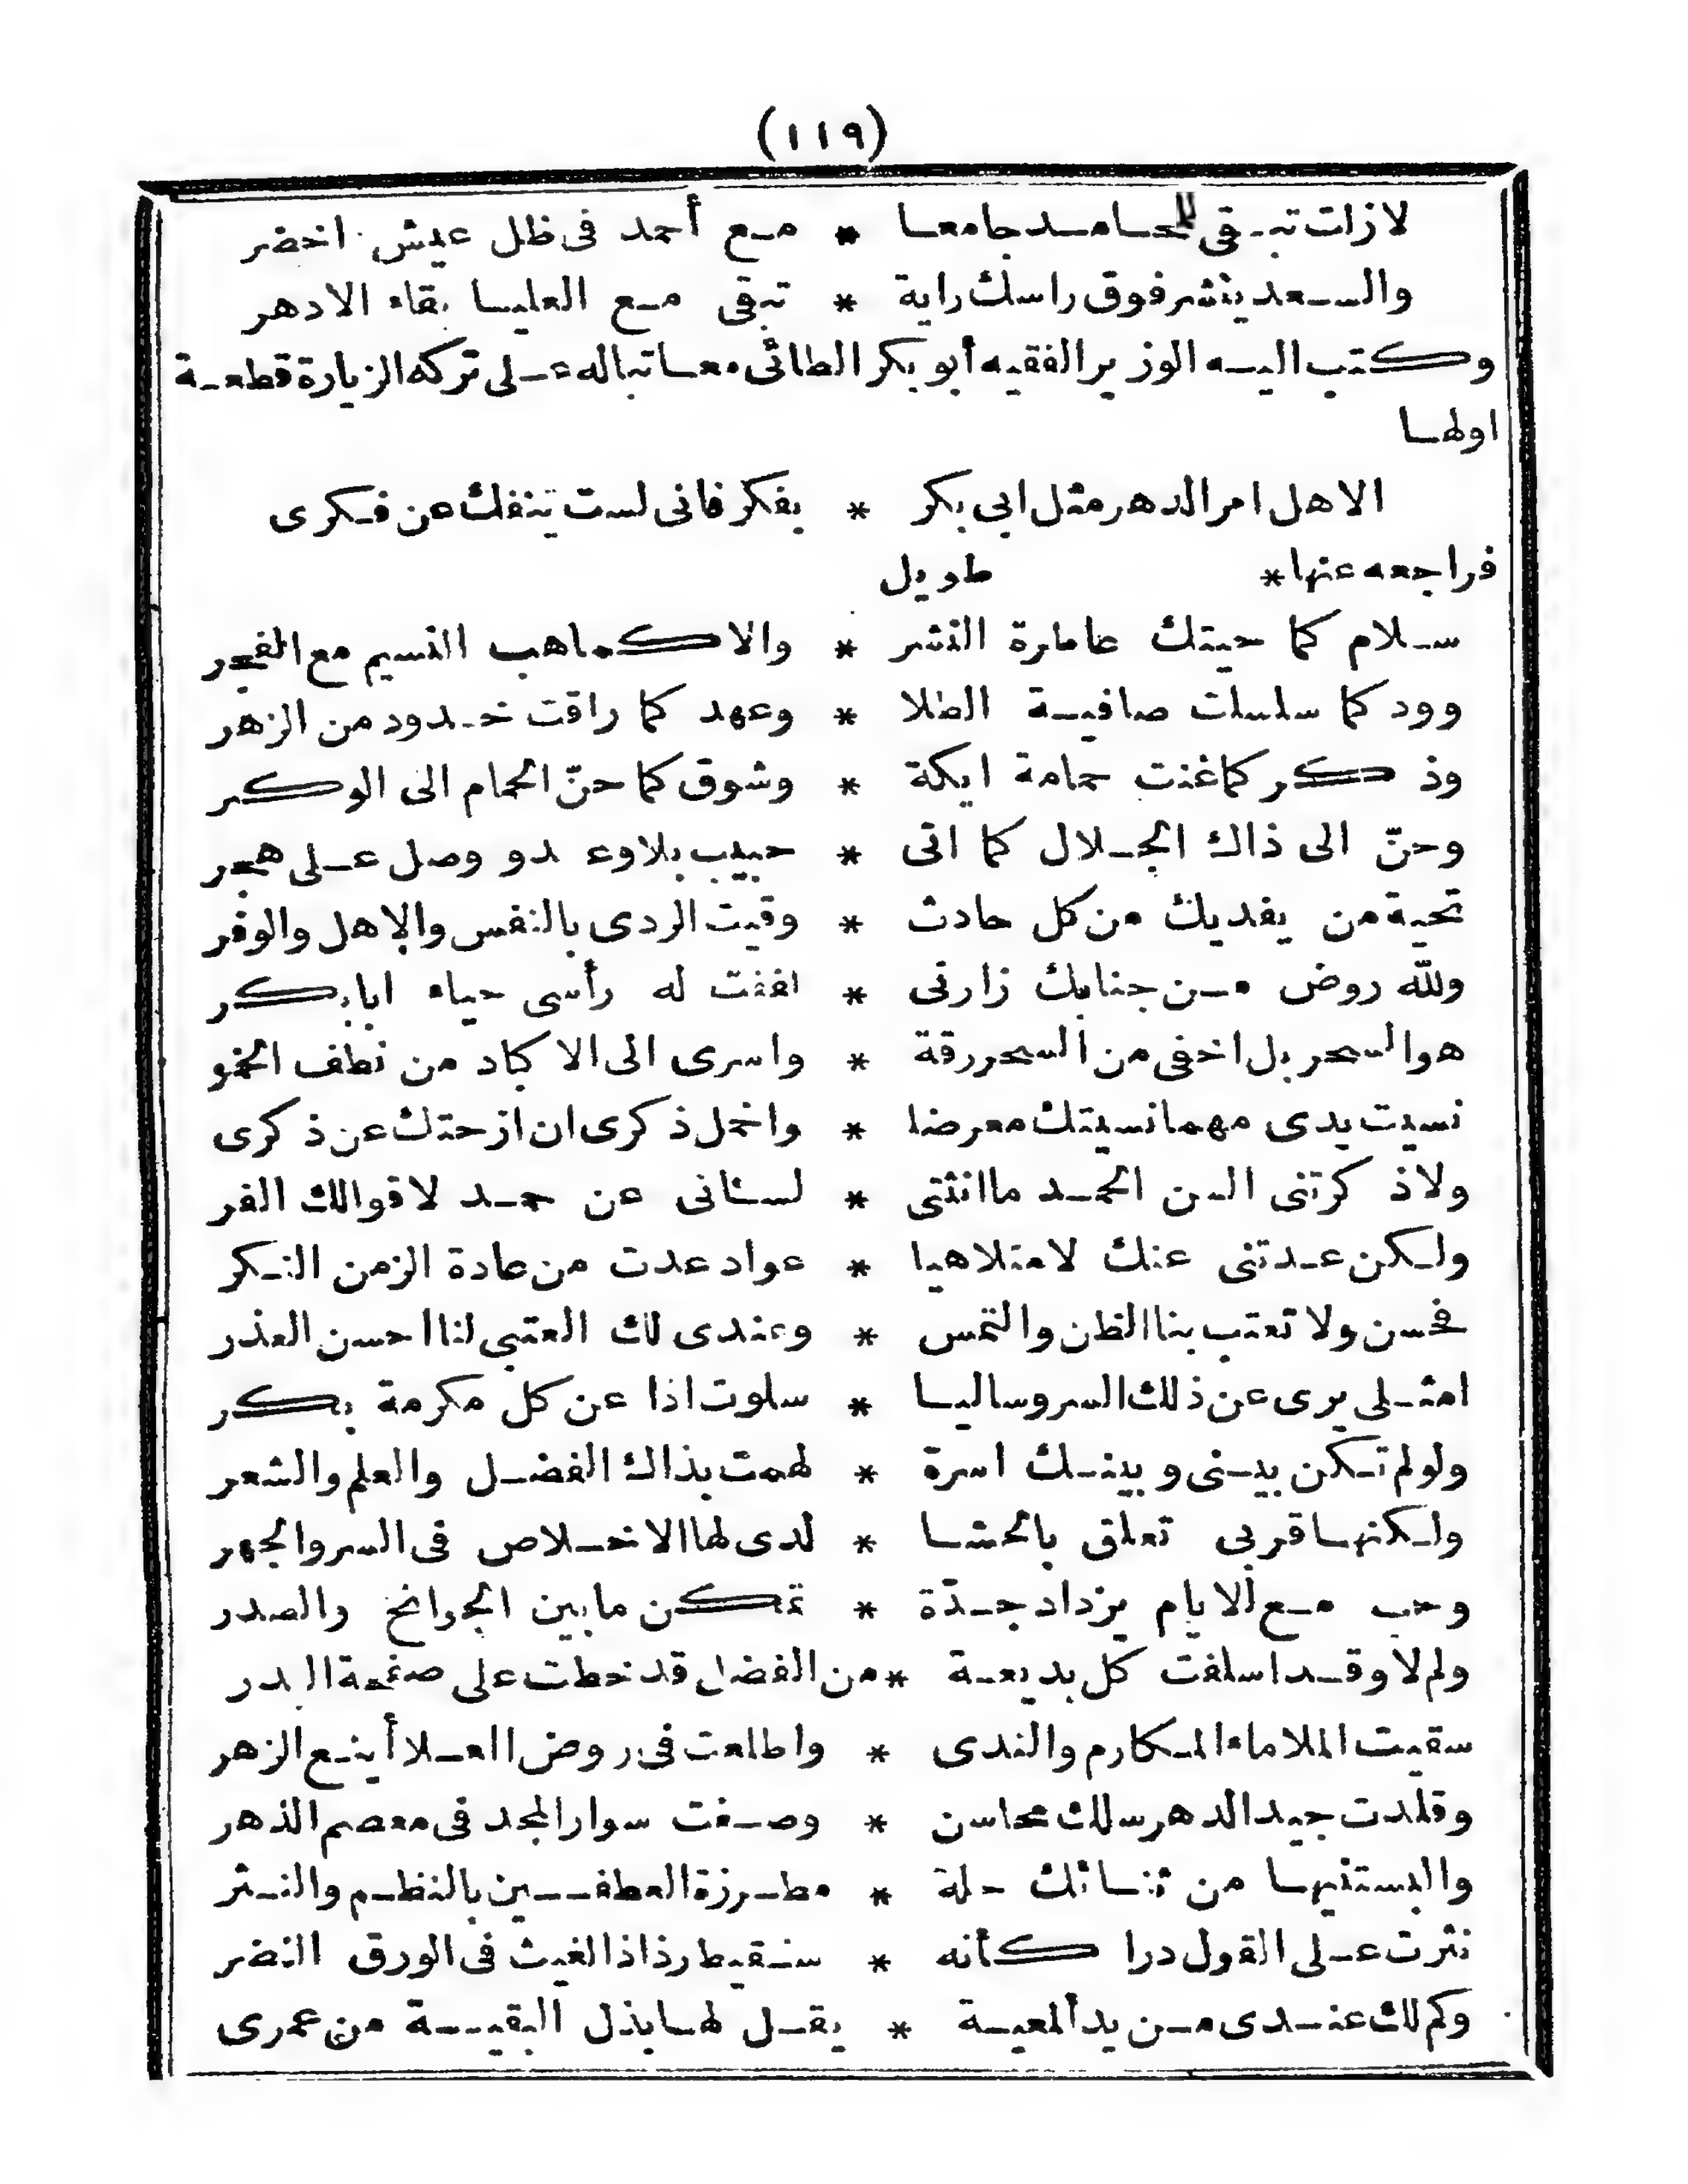 (١١٩)
لازلت تبقى للمحامد جامعا * مع أحمد فى ظل عيش اخضر
والسعد ينشر فوق راسك راية * تبقى مع العليا بقاء الادهر
وكتب اليه الوزير الفقيه أبو بكر الطائى معاتباله على تركه الزيارة قطعة
اولها
الاهل امر الدهر مثل ابى بكر * بفكر فانى لست تنفك عن فكرى
فراجعه عنها * طويل
سلام كما حيتك عاطرة النشر * والا كما هب النسيم مع الفجر
وود كما سلسلت صافية الطلا * وعهد كما راقت خدود من الزهر
وذكر كما غنت حمامة ايكة * وشوق كما حنّ الحمام الى الوكر
وحنّ الى ذاك الجلال كما اتى * حبيب بلا وعد ووصل على هجر
تحية من يفديك من كل حادث * وقيت الردى بالنفس والاهل والوفر
ولله روض من جنابك زارنى * اففت له رأسى حياء ابابكر
هو السحر بل اخفى من السحر رقة * واسرى الى الاكباد من نطف الخمو
نسيت يدى مهما نسيتك معرضا * واخمل ذكرى ان ازحتك عن ذكرى
ولا ذكرتنى السن الحمد ما انثنى * لسانى عن حمد لاقوالك الغر
ولكن عدتنى عنك لا متلاهيا * عواد عدت من عادة الزمن النكر
فحسن ولا تعتب بنا الظن والتمس * وعندى لك العتبى لنا احسن العذر
امثلى يرى عن ذلك السرو ساليا * سلوت اذا عن كل مكرمة بكر
ولو لم تكن بينى وبينك اسرة * لهمت بذاك الفضل والعلم والشعر
ولكنها قربى تعلق بالحشا * لدى لها الاخلاص فى السر والجهر
وحب مع الايام يزداد جدّة * تمكن ما بين الجوانح والصدر
ولم لا وقد اسلفت كل بديعة * من الفضل قد خطت على صفحة البدر
سقيت الملا ماء المكارم والندى * واطلعت فى روض العلا أينع الزهر
وقلدت جيد الدهر سلك محاسن * وصغت سوار المجد فى معصم الذهر
والبستنيها من ثنائك حلة * مطرزة العطفين بالنظم والنثر
نثرت على القول درا كأنه * سقيط رذاذ الغيث فى الورق النضر
وكم لك عندى من يد ألمعية * يقل لها بذل البقية من عمرى